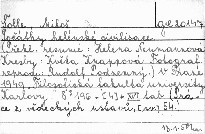 Tölle, Miloš
Počátky helénské civilisace.
(Překl. resumé: Helena Neumannová
Kresby: Květa Knappová Fotograf.
reprod.: Rudolf Podzemný.) V Praze
1949, Filosofická fakulta university
Karlovy. 8° 196 - (3) + XVI tab. (Prá-
ce z vědeckých ústavů, sv. 54.)